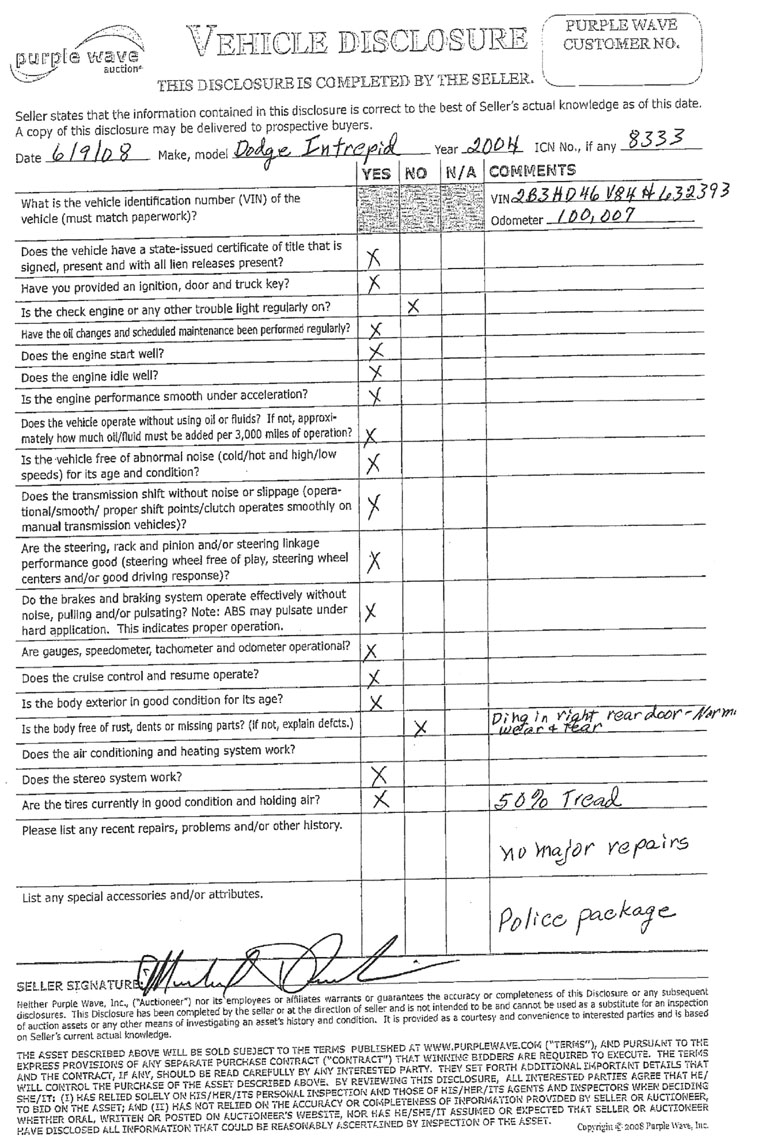 purple wave
auction®
VEHICLE DISCLOSURE
THIS DISCLOSURE IS COMPLETED BY THE SELLER.
PURPLE WAVE
CUSTOMER NO.
Seller states that the information contained in this disclosure is correct to the best of Seller's actual knowledge as of this date.
A copy of this disclosure may be delivered to prospective buyers.
Date 6/9/08 Make, model Dodge Intrepid Year 2004 ICN No., if any 8333
YES NO N/A COMMENTS
What is the vehicle identification number (VIN) of the
vehicle (must match paperwork)?
VIN 2B3HD46V84H632393
Odometer 100,007
Does the vehicle have a state-issued certificate of title that is
signed, present and with all lien releases present? X
Have you provided an ignition, door and truck key? X
Is the check engine or any other trouble light regularly on? X
Have the oil changes and scheduled maintenance been performed regularly? X
Does the engine start well? X
Does the engine idle well? X
Is the engine performance smooth under acceleration? X
Does the vehicle operate without using oil or fluids? If not, approxi-
mately how much oil/fluid must be added per 3,000 miles of operation? X
Is the vehicle free of abnormal noise (cold/hot and high/low
speeds) for its age and condition? X
Does the transmission shift without noise or slippage (opera-
tional/smooth/ proper shift points/clutch operates smoothly on
manual transmission vehicles)? X
Are the steering, rack and pinion and/or steering linkage
performance good (steering wheel free of play, steering wheel
centers and/or good driving response)? X
Do the brakes and braking system operate effectively without
noise, pulling and/or pulsating? Note: ABS may pulsate under
hard application. This indicates proper operation. X
Are gauges, speedometer, tachometer and odometer operational? X
Does the cruise control and resume operate? X
Is the body exterior in good condition for its age? X
Is the body free of rust, dents or missing parts? (if not, explain defcts.) X
Ding in right rear door - Norm.
wear & tear
Does the air conditioning and heating system work?
Does the stereo system work? X
Are the tires currently in good condition and holding air? X 50% Tread
Please list any recent repairs, problems and/or other history.
no major repairs
List any special accessories and/or attributes.
Police package
SELLER SIGNATURE:
Neither Purple Wave, Inc., ("Auctioneer") nor its employees or affiliates warrants or guarantees the accuracy or completeness of this Disclosure or any subsequent
disclosures. This Disclosure has been completed by the seller or at the direction of seller and is not intended to be and cannot be used as a substitute for an inspection
of auction assets or any other means of investigating an asset's history and condition. It is provided as a courtesy and convenience to interested parties and is based
on Seller's current actual knowledge.
THE ASSET DESCRIBED ABOVE WILL BE SOLD SUBJECT TO THE TERMS PUBLISHED AT WWW.PURPLEWAVE.COM ("TERMS"), AND PURSUANT TO THE
EXPRESS PROVISIONS OF ANY SEPARATE PURCHASE CONTRACT ("CONTRACT") THAT WINNING BIDDERS ARE REQUIRED TO EXECUTE. THE TERMS
AND THE CONTRACT, IF ANY, SHOULD BE READ CAREFULLY BY ANY INTERESTED PARTY. THEY SET FORTH ADDITIONAL IMPORTANT DETAILS THAT
WILL CONTROL THE PURCHASE OF THE ASSET DESCRIBED ABOVE. BY REVIEWING THIS DISCLOSURE, ALL INTERESTED PARTIES AGREE THAT HE/
SHE/IT: (I) HAS RELIED SOLELY ON HIS/HER/ITS PERSONAL INSPECTION AND THOSE OF HIS/HER/ITS AGENTS AND INSPECTORS WHEN DECIDING
TO BID ON THE ASSET; AND (II) HAS NOT RELIED ON THE ACCURACY OR COMPLETENESS OF INFORMATION PROVIDED BY SELLER OR AUCTIONEER,
WHETHER ORAL, WRITTEN OR POSTED ON AUCTIONEER'S WEBSITE, NOR HAS HE/SHE/IT ASSUMED OR EXPECTED THAT SELLER OR AUCTIONEER
HAVE DISCLOSED ALL INFORMATION THAT COULD BE REASONABLY ASCERTAINED BY INSPECTION OF THE ASSET.
Copyright © 2008 Purple Wave, Inc.